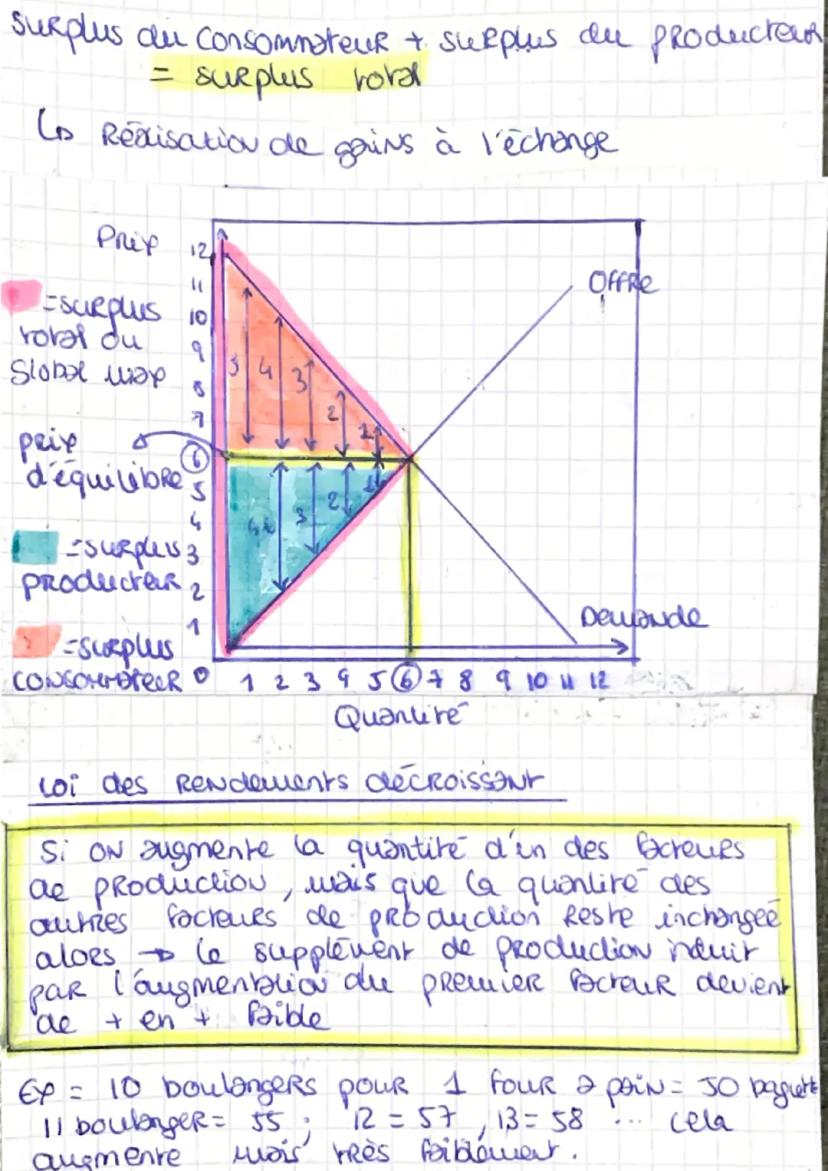 surplus du consommateur + surplus du producteur
= surplus total
↳ Réalisation de gains à l'échange
Prix
12
11
10
9
8
7
6
5
4
3
2
1
0
=surplus
total ou
Global max
prix
d'équilibre
=surplus
producteur
=surplus
consommateur
Offre
Demande
5 4 3 2 1
4 3 2 1
1 2 3 4 5 6 7 8 9 10 11 12
Quantité
Loi des rendements décroissant
Si on augmente la quantité d'un des facteurs
de production, mais que la quantité des
autres facteurs de production reste inchangée
alors → le supplément de production induit
par l'augmentation du premier facteur devient
de + en + faible
Ex = 10 boulangers pour 1 four à pain = 50 baguette
11 boulanger = 55 ; 12 = 57 , 13 = 58 ... cela
augmente mais très faiblement.